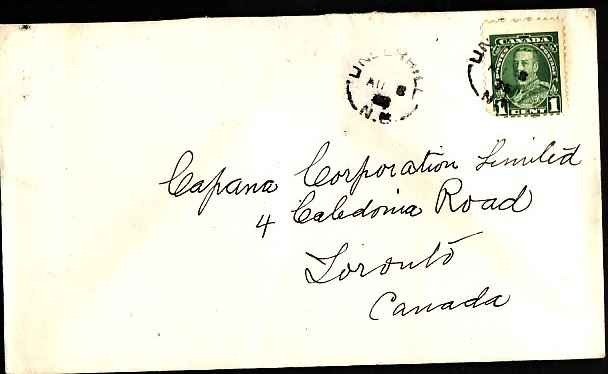 UNDERHILL
AU 8
N.B.
CANADA
1
CENT
Capana Corporation Limited
4 Caledonia Road
Toronto
Canada